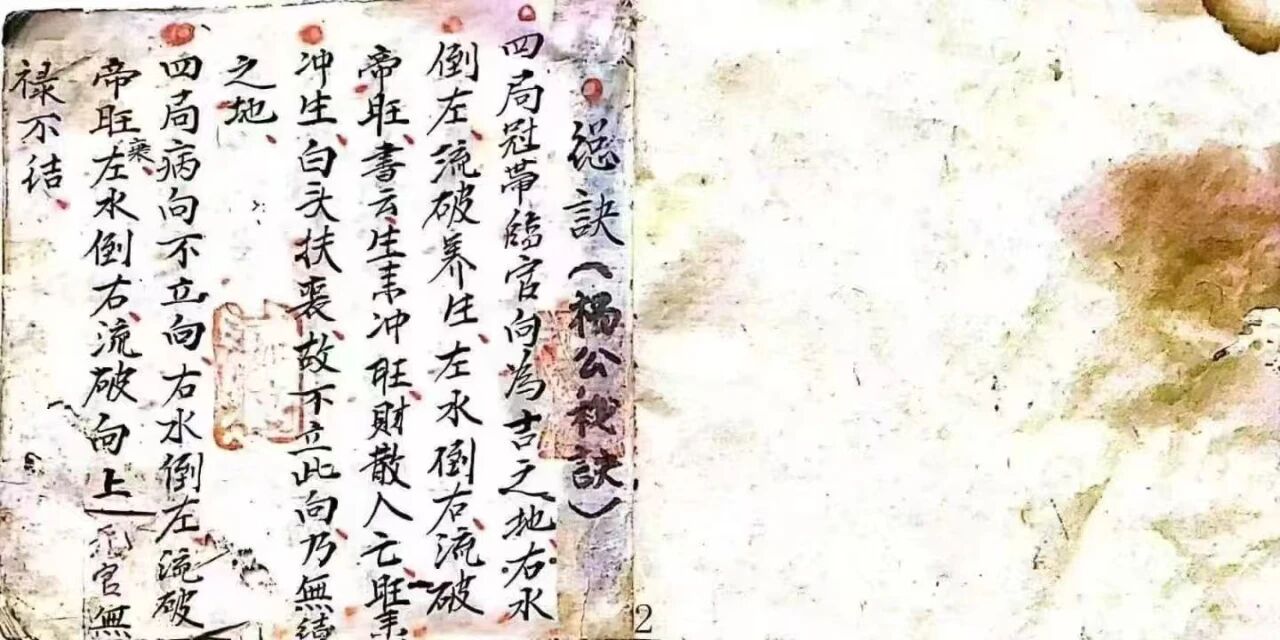 總訣（楊公秘訣）
四局冠帶臨官向為吉之地、右水
倒左、流破养生、左水倒右、流破
帝旺、書云、生来冲旺、財散人亡、旺来
冲生、白头扶丧、故不立此向、乃無結
之地、
四局病向不立向、右水倒左、流破
帝旺衰、左水倒右、流破向上元官無
禄不结、
2